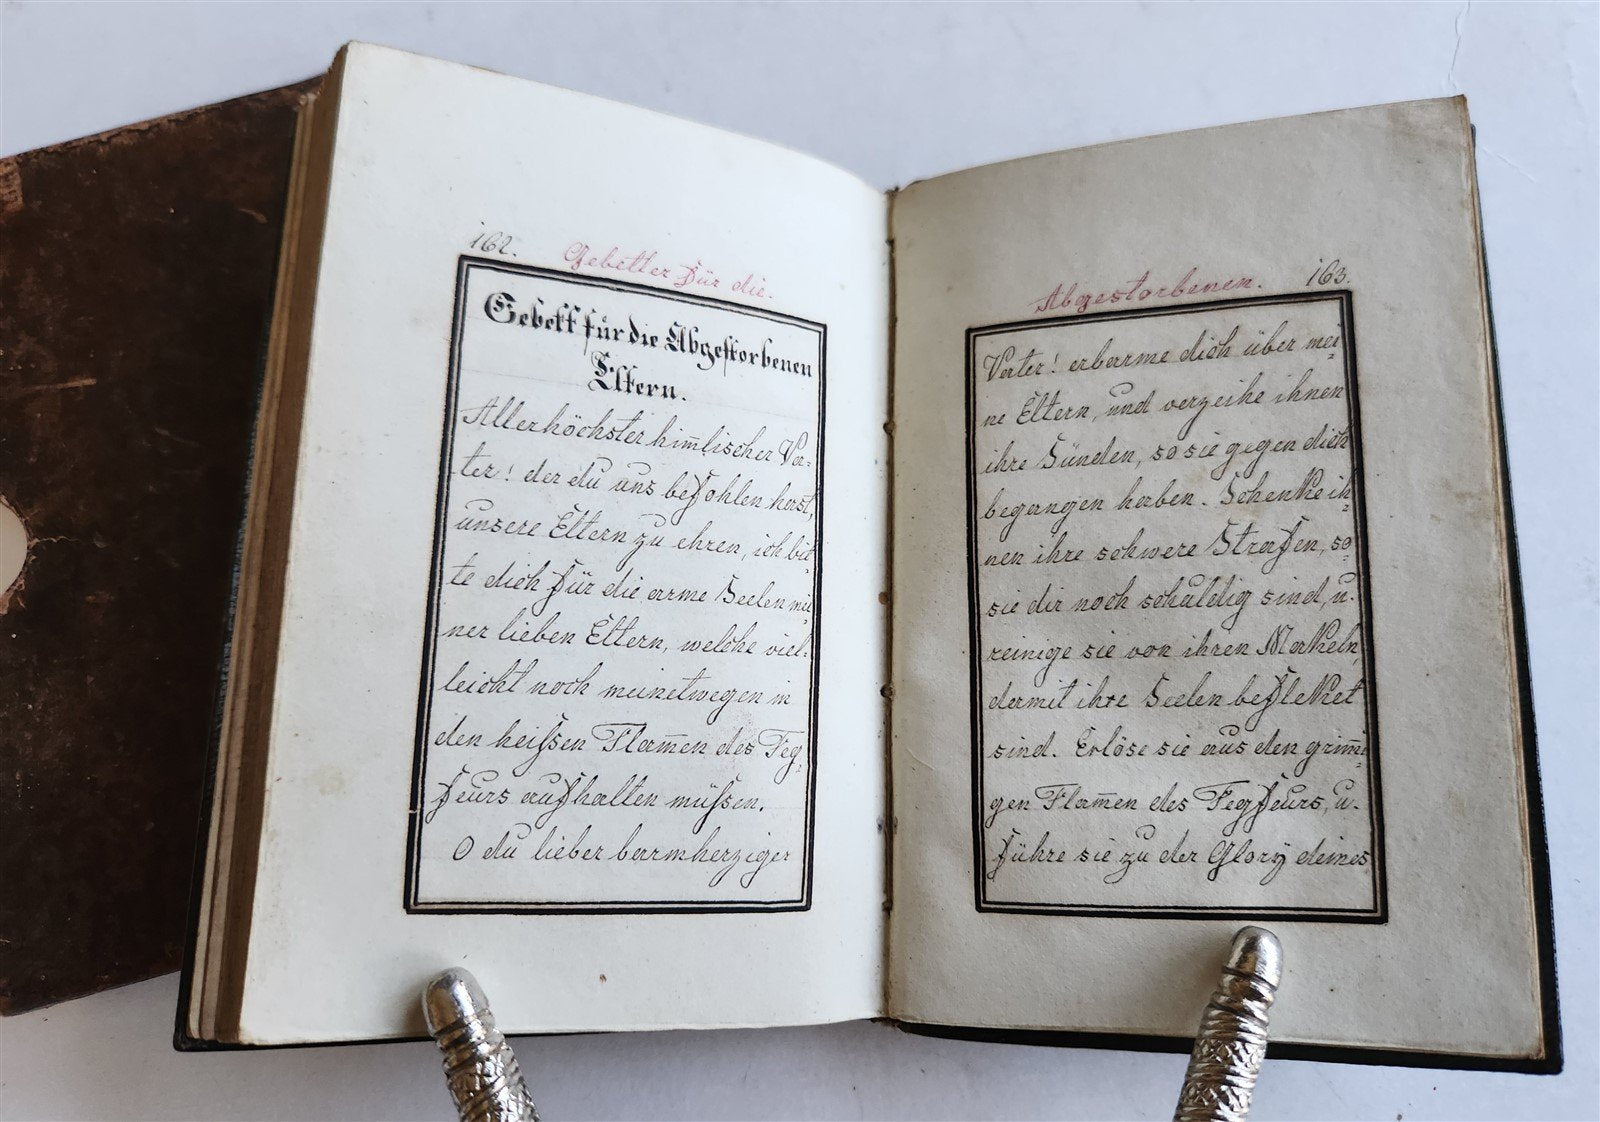 162.
Gebetter für die.
Gebett für die Abgestorbenen
Eltern.
Allerhöchster him̅lischer Va-
ter! der du uns befohlen hast,
unsere Eltern zu ehren, ich bit-
te dich für die arme Seelen mei-
ner lieben Eltern, welche viel-
leicht noch meinetwegen in
den heiſsen Flam̅en des Feg-
feurs aufhalten müſsen.
O du lieber barmherziger
Abgestorbenen.
163.
Vater! erbarme dich über mei-
ne Eltern, und verzeihe ihnen
ihre Sünden, so sie gegen dich
begangen haben. Schenke ih-
nen ihre schwere Strafen, so
sie dir noch schuldig sind, u.
reinige sie von ihren Makeln,
darmit ihre Seelen befleket
sind. Erlöse sie aus den grim̅i-
gen Flam̅en des Fegfeurs, u.
führe sie zu der Glorÿ deines